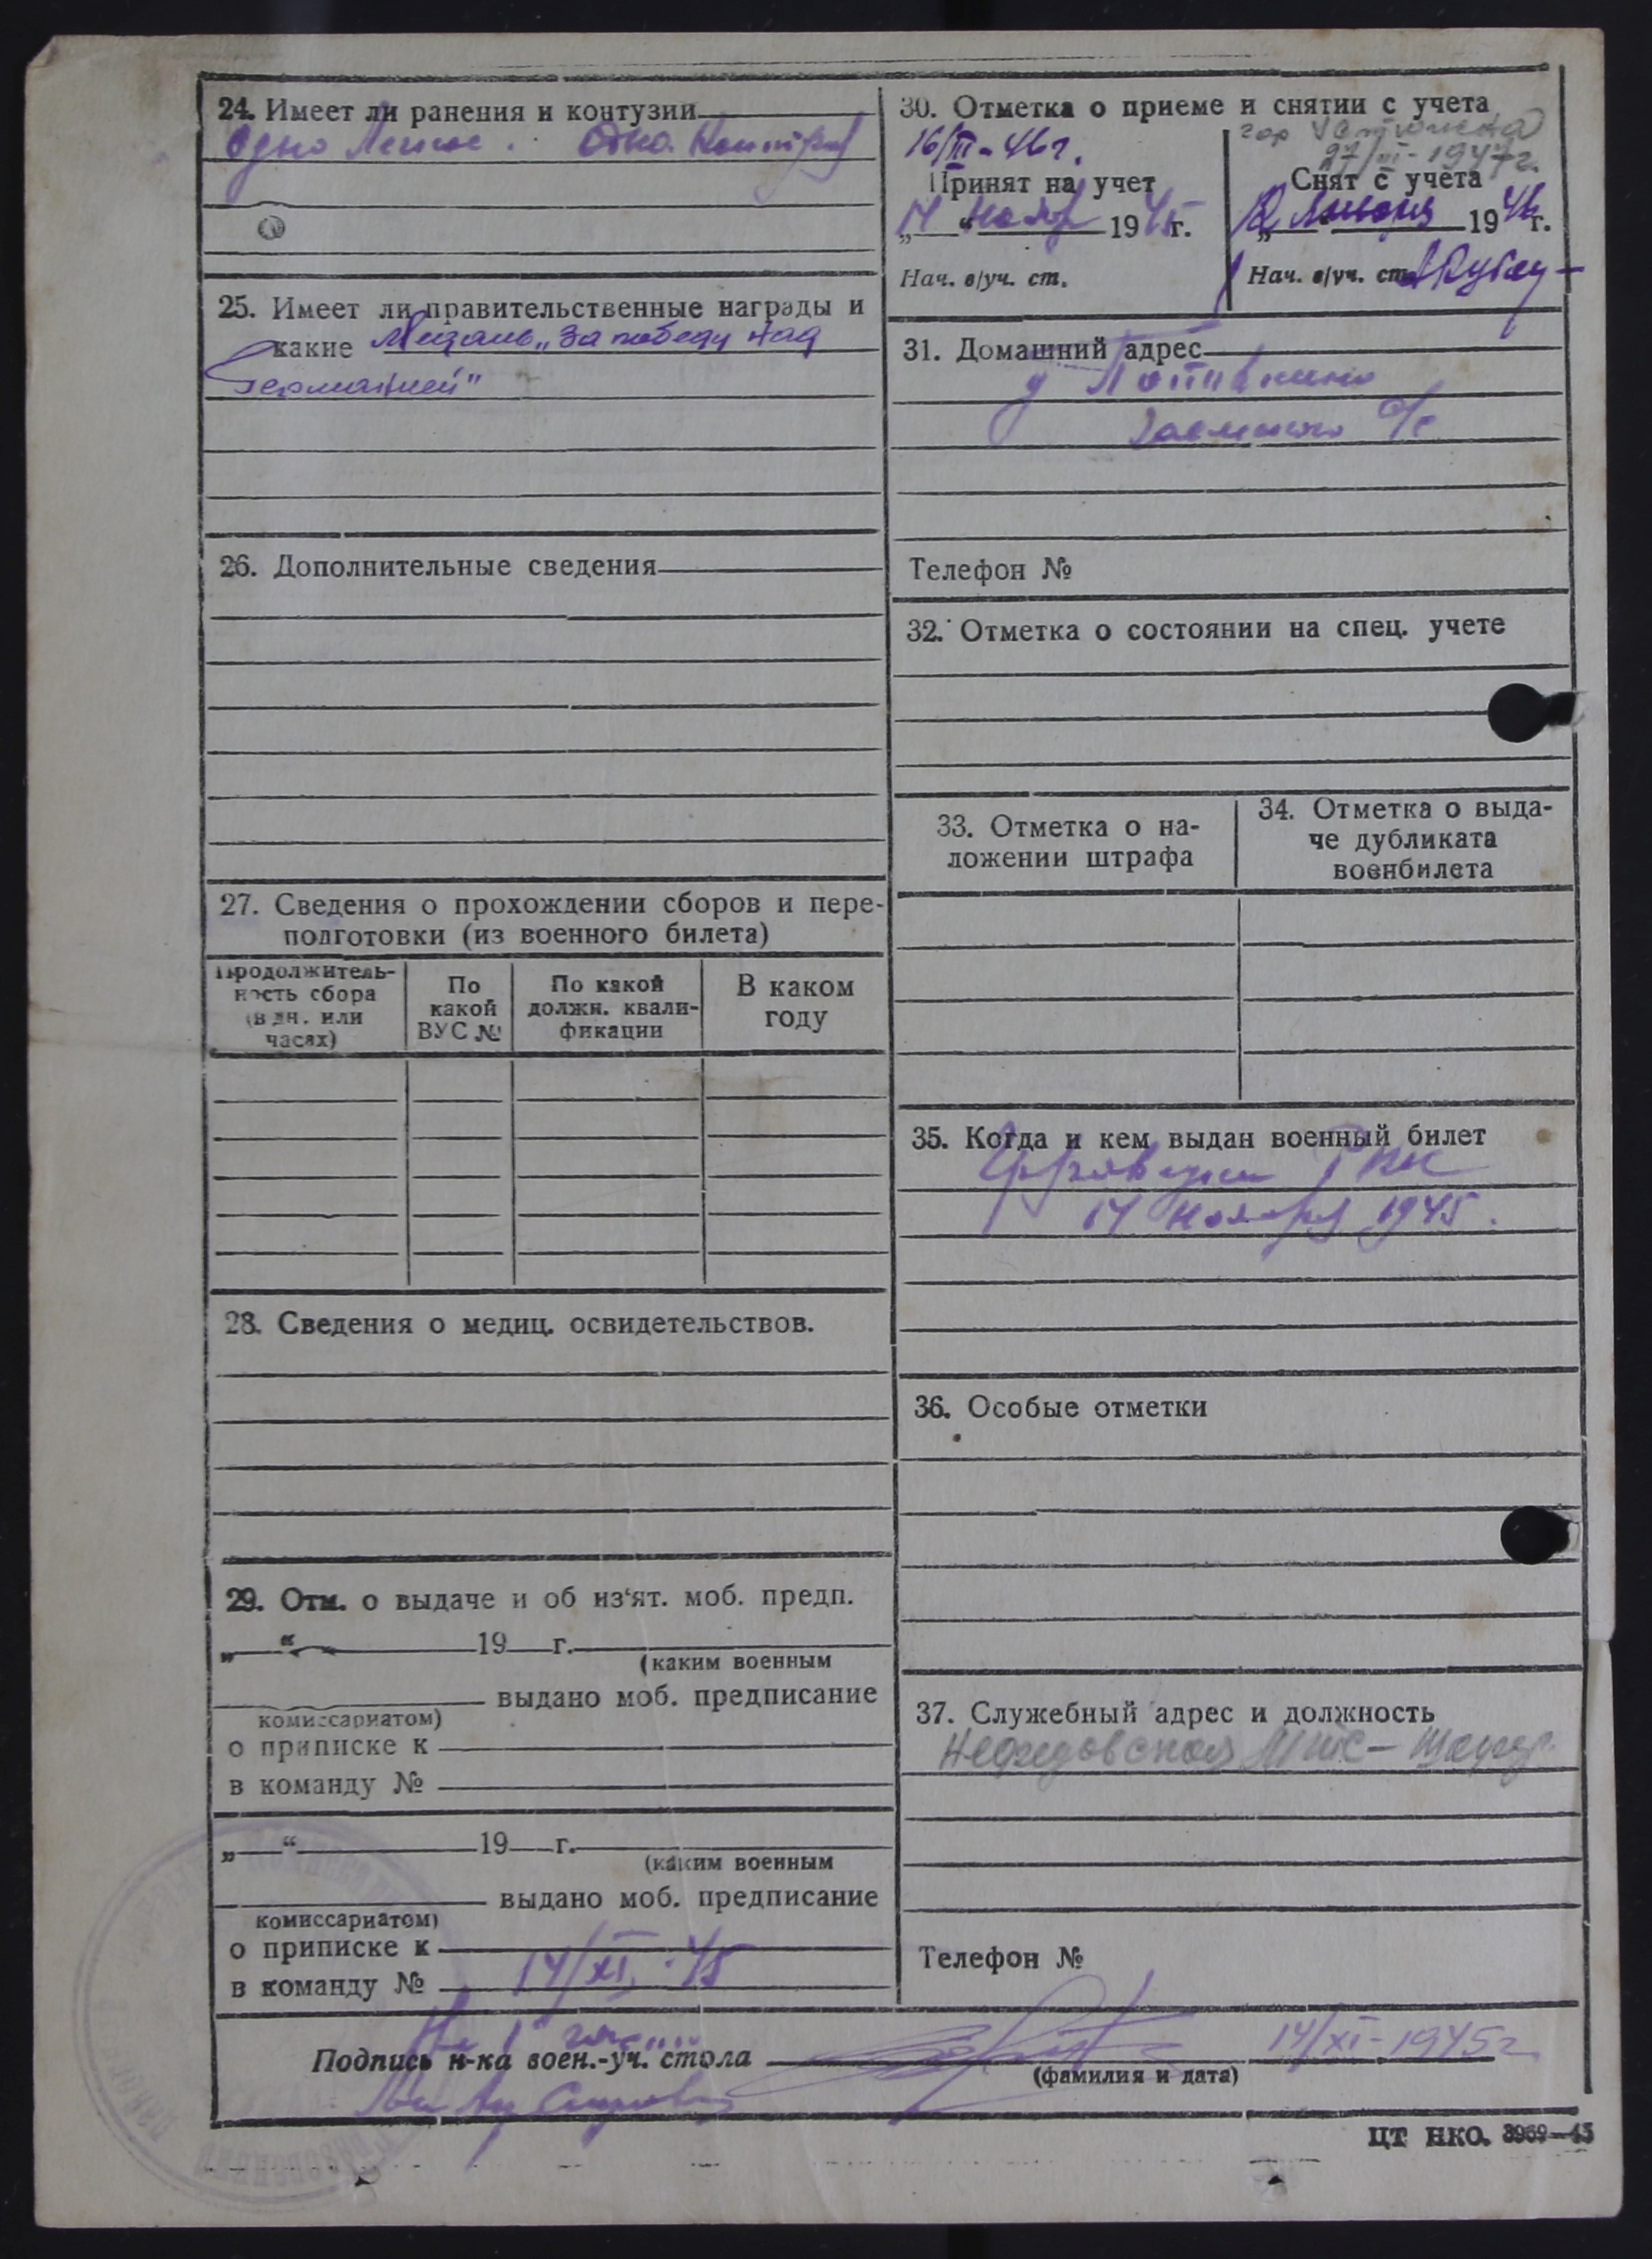 24. Имеет ли ранения и контузии
Одно Легкое. Одна
25. Имеет ли правительственные награды и
какие Медаль „За победу над
Германией"
26. Дополнительные сведения
27. Сведения о прохождении сборов и пере-
подготовки (из военного билета)
Продолжитель-
ность сбора
(в дн. или
часах)
По
какой
ВУС №
По какой
должн. квали-
фикации
В каком
году
28. Сведения о медиц. освидетельствов.
29. Отм. о выдаче и об из‘ят. моб. предп.
„ “ 19 г.
(каким военным
выдано моб. предписание
комиссариатом)
о приписке к
в команду №
„ “ 19 г.
(каким военным
выдано моб. предписание
комиссариатом)
о приписке к
в команду № 14/XI. 45
30. Отметка о приеме и снятии с учета
16/III-46г.
Принят на учет
„14“ Ноябр 1945г.
Нач. в/уч. ст.
гор
27/III-1947г.
Снят с учета
Января 1946г.
Нач. в/уч. ст.
31. Домашний адрес
д
с/с
Телефон №
32. Отметка о состоянии на спец. учете
33. Отметка о на-
ложении штрафа
34. Отметка о выда-
че дубликата
военбилета
35. Когда и кем выдан военный билет
РВК
14 Ноября 1945.
36. Особые отметки
37. Служебный адрес и должность
МТС –
Телефон №
Подпись н-ка воен.-уч. стола
14/XI-1945г
(фамилия и дата)
ЦТ НКО. 3969—45